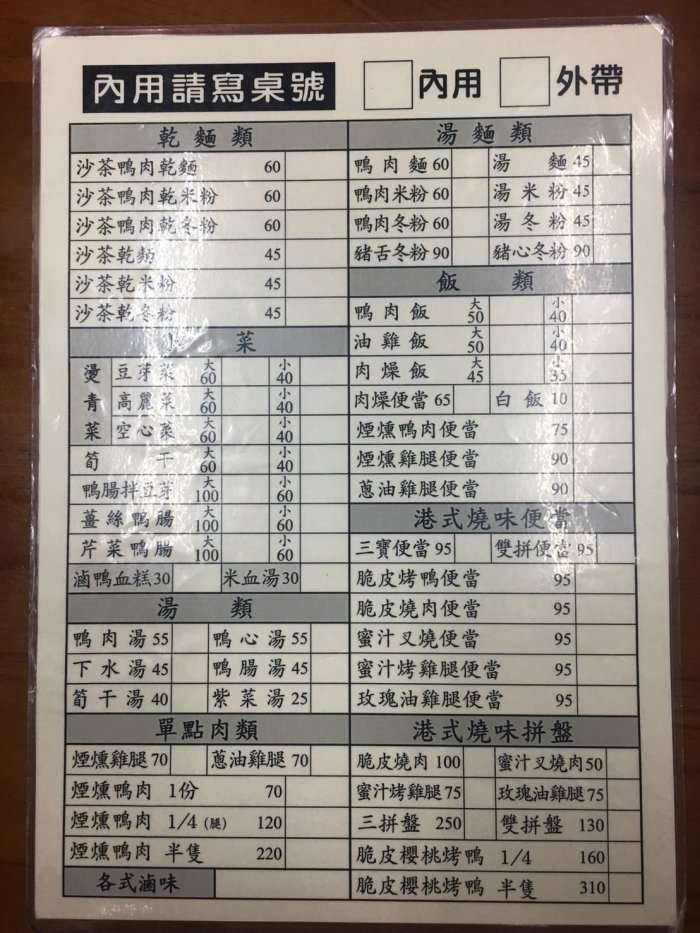 內用請寫桌號 內用 外帶
乾麵類
沙茶鴨肉乾麵 60
沙茶鴨肉乾米粉 60
沙茶鴨肉乾冬粉 60
沙茶乾麵 45
沙茶乾米粉 45
沙茶乾冬粉 45
小菜
燙青菜
豆芽菜 大60 小40
高麗菜 大60 小40
空心菜 大60 小40
筍干 大60 小40
鴨腸拌豆芽 大100 小60
薑絲鴨腸 大100 小60
芹菜鴨腸 大100 小60
滷鴨血糕30 米血湯30
湯類
鴨肉湯55 鴨心湯55
下水湯45 鴨腸湯45
筍干湯40 紫菜湯25
單點肉類
煙燻雞腿70 蔥油雞腿70
煙燻鴨肉 1份 70
煙燻鴨肉 1/4(腿) 120
煙燻鴨肉 半隻 220
各式滷味
湯麵類
鴨肉麵60 湯麵45
鴨肉米粉60 湯米粉45
鴨肉冬粉60 湯冬粉45
豬舌冬粉90 豬心冬粉90
飯類
鴨肉飯 大50 小40
油雞飯 大50 小40
肉燥飯 大45 小35
肉燥便當65 白飯10
煙燻鴨肉便當 75
煙燻雞腿便當 90
蔥油雞腿便當 90
港式燒味便當
三寶便當95 雙拼便當95
脆皮烤鴨便當 95
脆皮燒肉便當 95
蜜汁叉燒便當 95
蜜汁烤雞腿便當 95
玫瑰油雞腿便當 95
港式燒味拼盤
脆皮燒肉100 蜜汁叉燒肉50
蜜汁烤雞腿75 玫瑰油雞腿75
三拼盤 250 雙拼盤 130
脆皮櫻桃烤鴨 1/4 160
脆皮櫻桃烤鴨 半隻 310